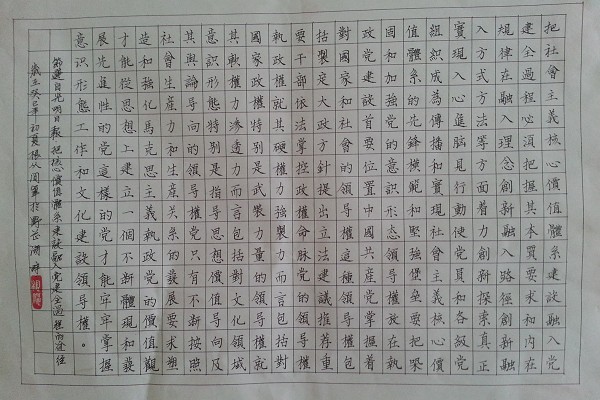 把社會主義核心價值體系建設融入黨
建全過程必須把握其本質要求和內在
規律在融入理念創新融入路徑創新融
入方式方法等方面着力創新探索真正
實現入心進腦見行動使黨員和各級黨
組織成為傳播和實現社會主義核心價
值體系的先鋒模範和堅強堡壘要把鞏
固和加強黨的意識形態領導權放在執
政黨建設首要位置中國共產黨掌握着
對國家和社會的領導權這種領導權包
括製國家大政方針提出立法建議推薦重
要幹部依法掌控政權命脈黨的領導權
執政權就其硬權力強製力量而言包括對
國家政權特別是武裝力量的領導權就
其軟權力滲透力而言包括對文化領域
意識形態特別是指思想價值意向及
其輿論導向的領導權黨只有不斷按照
社會生產力和生產關系的發展要求塑
造和強化馬克思主義執政黨的價值觀
才能從思想上建立一個不斷體現和發
展先進性的黨這樣的黨才能牢牢掌握
意識形態工作和文化建設領導權。
節選自光明日報把核心價值體系建設融入黨建全過程的途徑
歲在癸巳年初夏張從國筆於野花湖畔